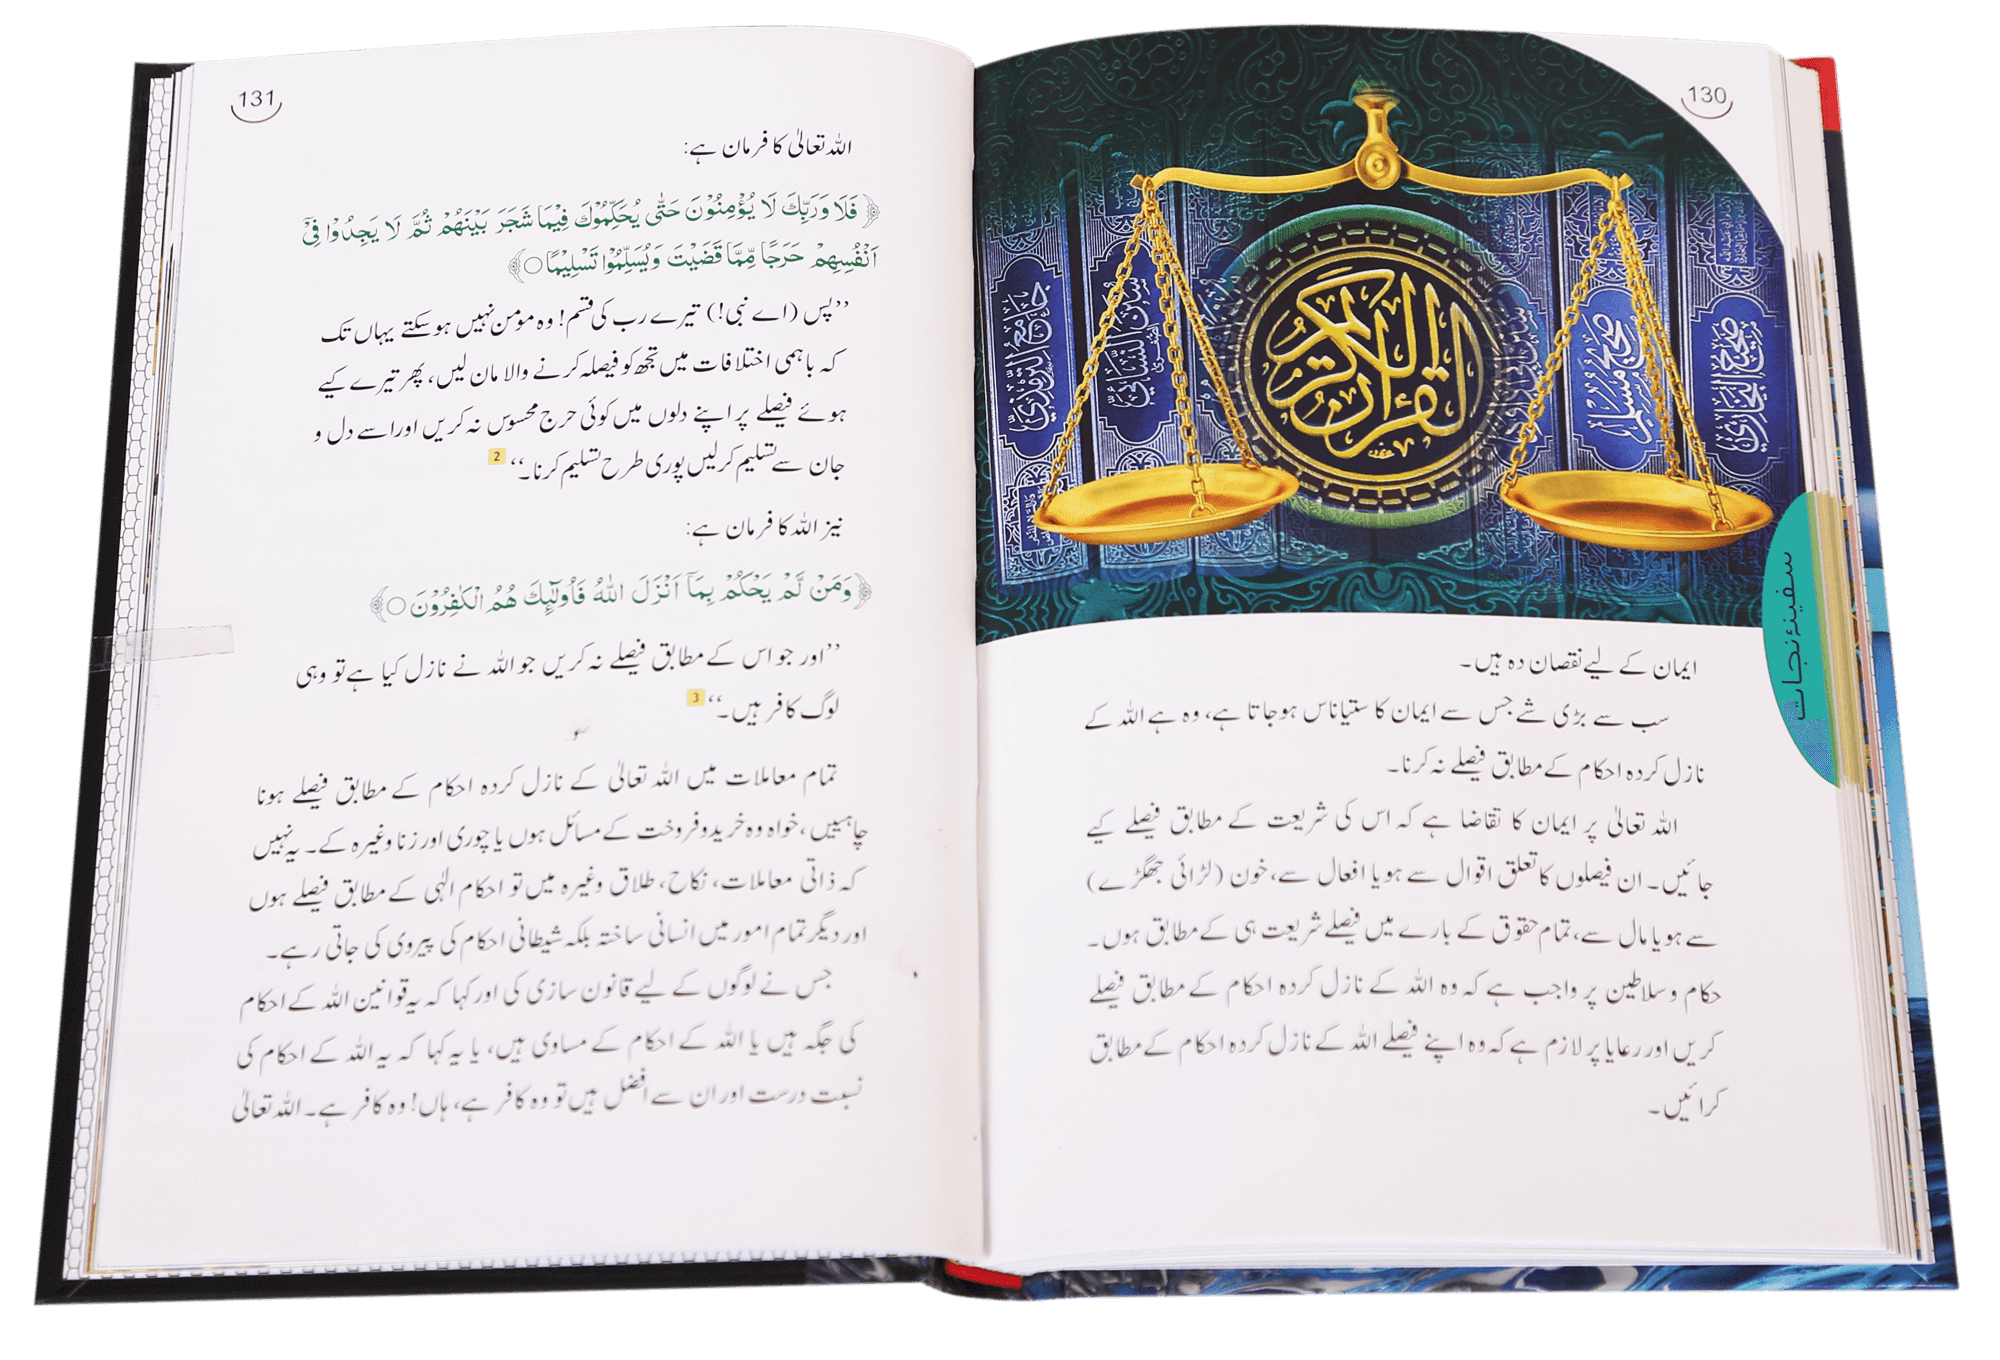 130
جامع الترمذي
سنن النسائي
القرآن الكريم
سنن أبي داود
صحيح مسلم
صحيح البخاري
سفینۂ نجات
ایمان کے لیے نقصان دہ ہیں۔
سب سے بڑی شے جس سے ایمان کا ستیاناس ہوجاتا ہے، وہ ہے اللہ کے
نازل کردہ احکام کے مطابق فیصلے نہ کرنا۔
اللہ تعالیٰ پر ایمان کا تقاضا ہے کہ اس کی شریعت کے مطابق فیصلے کیے
جائیں۔ ان فیصلوں کا تعلق اقوال سے ہو یا افعال سے، خون (لڑائی جھگڑے)
سے ہو یا مال سے، تمام حقوق کے بارے میں فیصلے شریعت ہی کے مطابق ہوں۔
حکام وسلاطین پر واجب ہے کہ وہ اللہ کے نازل کردہ احکام کے مطابق فیصلے
کریں اور رعایا پر لازم ہے کہ وہ اپنے فیصلے اللہ کے نازل کردہ احکام کے مطابق
کرائیں۔
131
اللہ تعالیٰ کا فرمان ہے:
﴿فَلَا وَرَبِّكَ لَا يُؤْمِنُوْنَ حَتّٰى يُحَكِّمُوْكَ فِيْمَا شَجَرَ بَيْنَهُمْ ثُمَّ لَا يَجِدُوْا فِيْٓ
اَنْفُسِهِمْ حَرَجًا مِّمَّا قَضَيْتَ وَيُسَلِّمُوْا تَسْلِيْمًا ○﴾
’’پس (اے نبی!) تیرے رب کی قسم! وہ مومن نہیں ہوسکتے یہاں تک
کہ باہمی اختلافات میں تجھ کو فیصلہ کرنے والا مان لیں، پھر تیرے کیے
ہوئے فیصلے پر اپنے دلوں میں کوئی حرج محسوس نہ کریں اور اسے دل و
جان سے تسلیم کرلیں پوری طرح تسلیم کرنا۔‘‘ 2
نیز اللہ کا فرمان ہے:
﴿وَمَنْ لَّمْ يَحْكُمْ بِمَآ اَنْزَلَ اللّٰهُ فَاُولٰٓئِكَ هُمُ الْكٰفِرُوْنَ ○﴾
’’اور جو اس کے مطابق فیصلے نہ کریں جو اللہ نے نازل کیا ہے تو وہی
لوگ کافر ہیں۔‘‘ 3
تمام معاملات میں اللہ تعالیٰ کے نازل کردہ احکام کے مطابق فیصلے ہونا
چاہییں، خواہ وہ خرید و فروخت کے مسائل ہوں یا چوری اور زنا وغیرہ کے۔ یہ نہیں
کہ ذاتی معاملات، نکاح، طلاق وغیرہ میں تو احکام الٰہی کے مطابق فیصلے ہوں
اور دیگر تمام امور میں انسانی ساختہ بلکہ شیطانی احکام کی پیروی کی جاتی رہے۔
جس نے لوگوں کے لیے قانون سازی کی اور کہا کہ یہ قوانین اللہ کے احکام
کی جگہ ہیں یا اللہ کے احکام کے مساوی ہیں، یا یہ کہا کہ یہ اللہ کے احکام کی
نسبت درست اور ان سے افضل ہیں تو وہ کافر ہے، ہاں! وہ کافر ہے۔ اللہ تعالیٰ